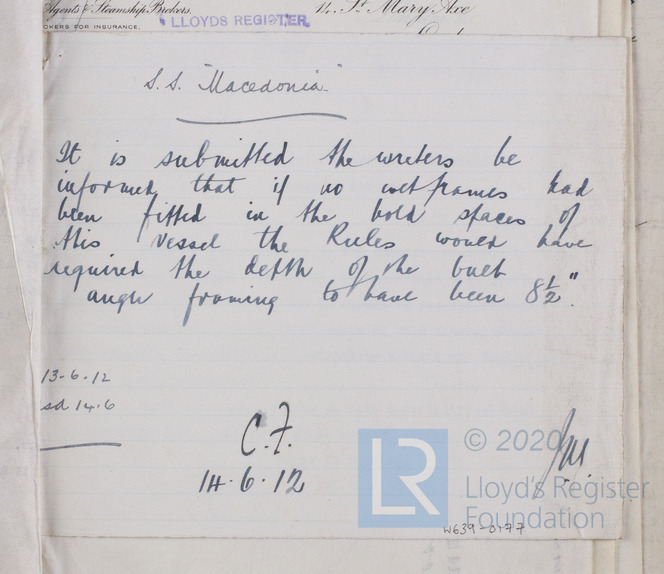 Agents & Steamship Brokers.
OKERS FOR INSURANCE.
LLOYDS REGISTER,
St. Mary Axe
S.S. "Macedonia"
It is submitted the writers be
informed that if no webframes had
been fitted in the hold spaces of
this vessel the Rules would have
required the depth of the built
angle framing to have been 8½".
13-6-12
sd 14.6
C.F.
14.6.12
LR
© 2020
Lloyd's Register
Foundation
W639-0177